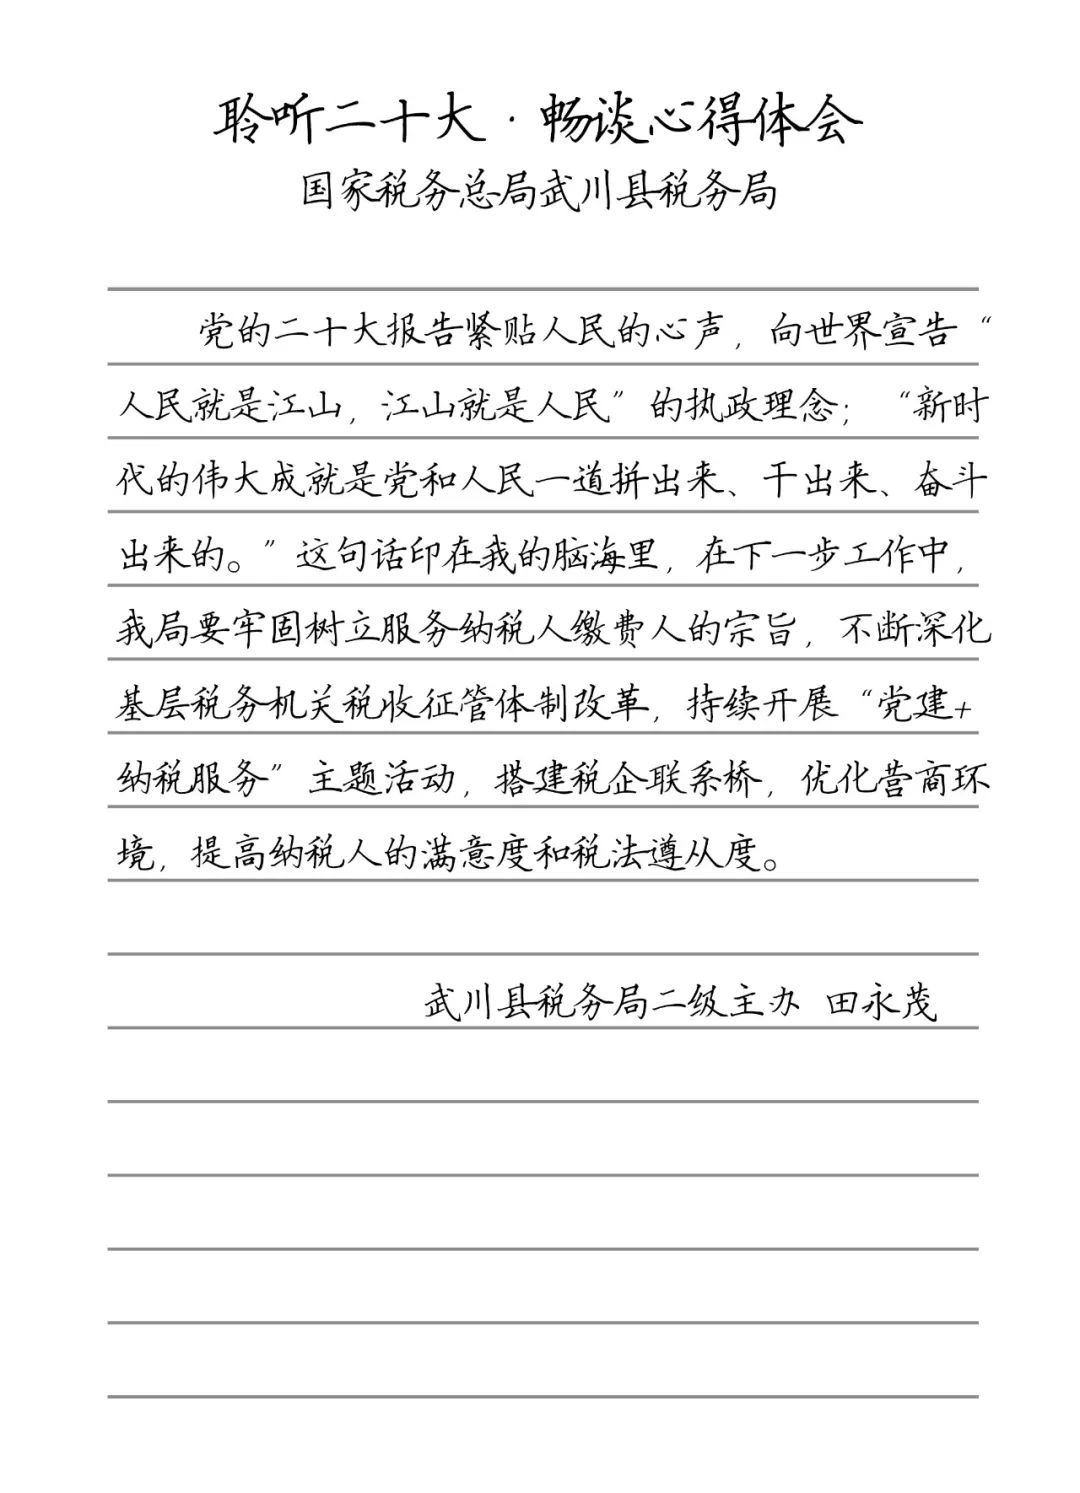 聆听二十大·畅谈心得体会
国家税务总局武川县税务局
党的二十大报告紧贴人民的心声，向世界宣告“
人民就是江山，江山就是人民”的执政理念；“新时
代的伟大成就是党和人民一道拼出来、干出来、奋斗
出来的。”这句话印在我的脑海里，在下一步工作中，
我局要牢固树立服务纳税人缴费人的宗旨，不断深化
基层税务机关税收征管体制改革，持续开展“党建+
纳税服务”主题活动，搭建税企联系桥，优化营商环
境，提高纳税人的满意度和税法遵从度。
武川县税务局二级主办 田永茂